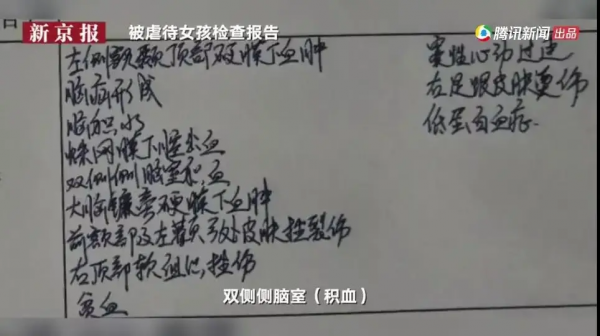 新京报
被虐待女孩检查报告
腾讯新闻 出品
左侧额颞顶部硬膜下血肿
脑疝形成
脑积水
蛛网膜下腔出血
双侧侧脑室积血
大脑镰旁硬膜下血肿
前额部及左着头皮皮肤挫裂伤
右顶部软组织挫伤
贫血
窦性心动过速
右足跟皮肤烫伤
低蛋白血症
双侧侧脑室（积血）